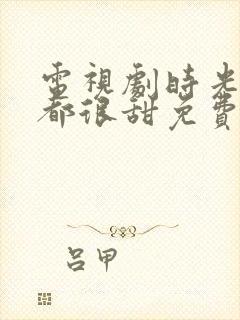 電視劇時光
都很甜免費
呂甲